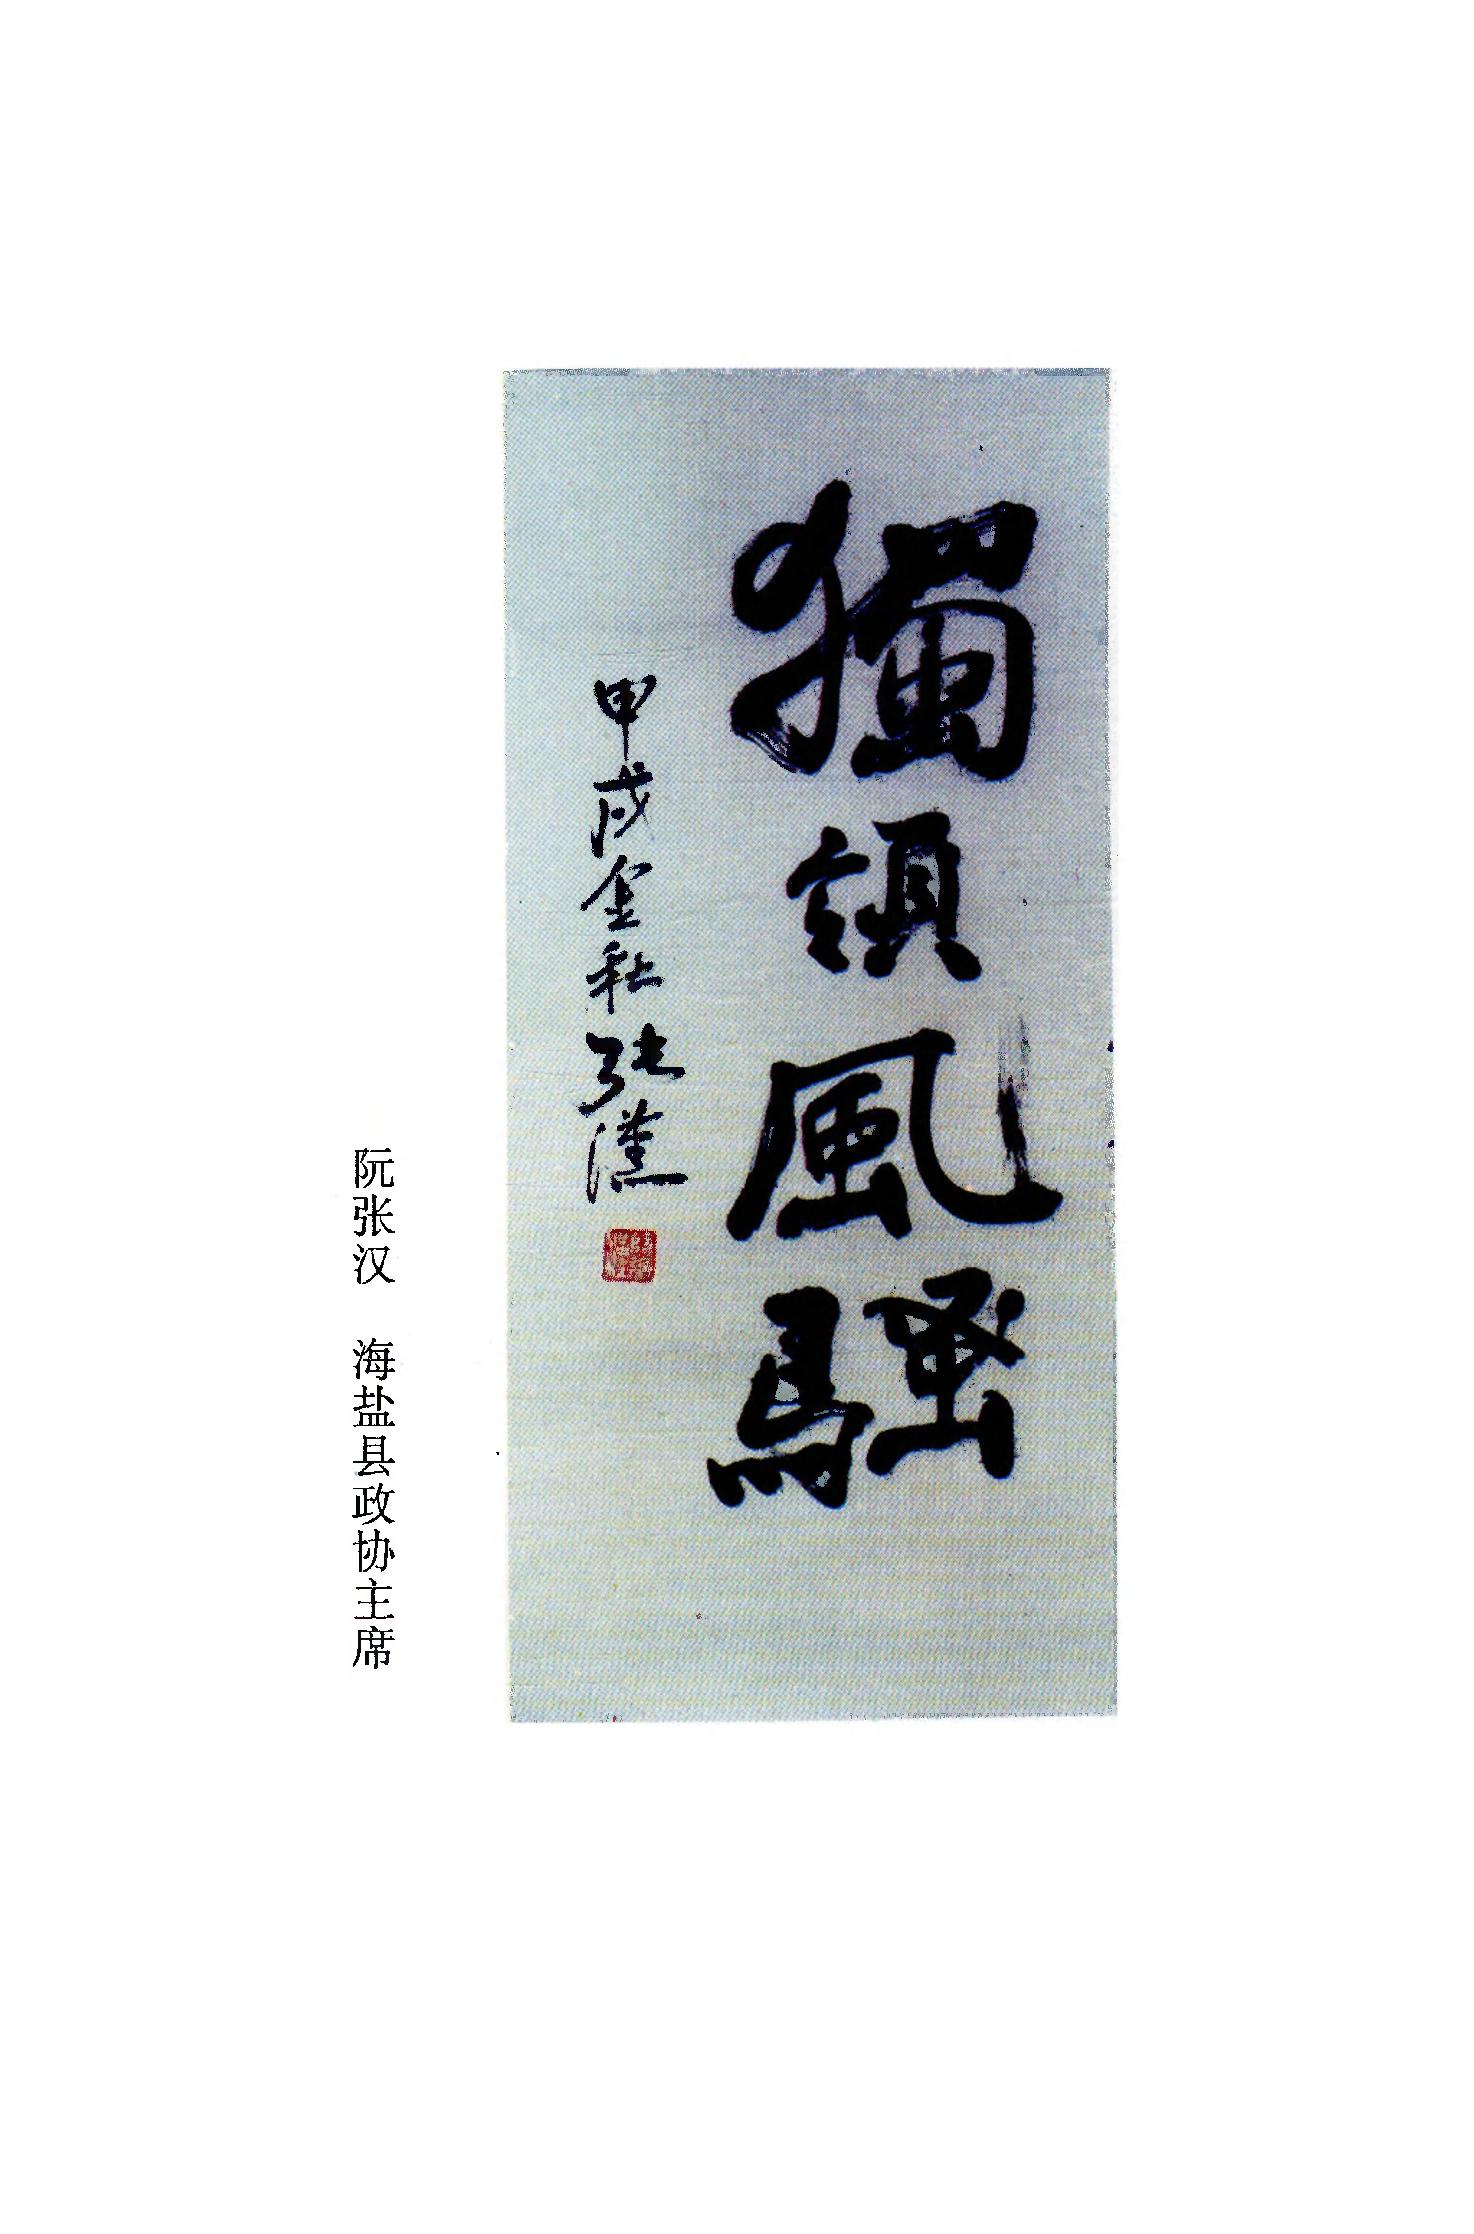 獨領風騷
甲戌金秋 张漢
阮张汉 海盐县政协主席